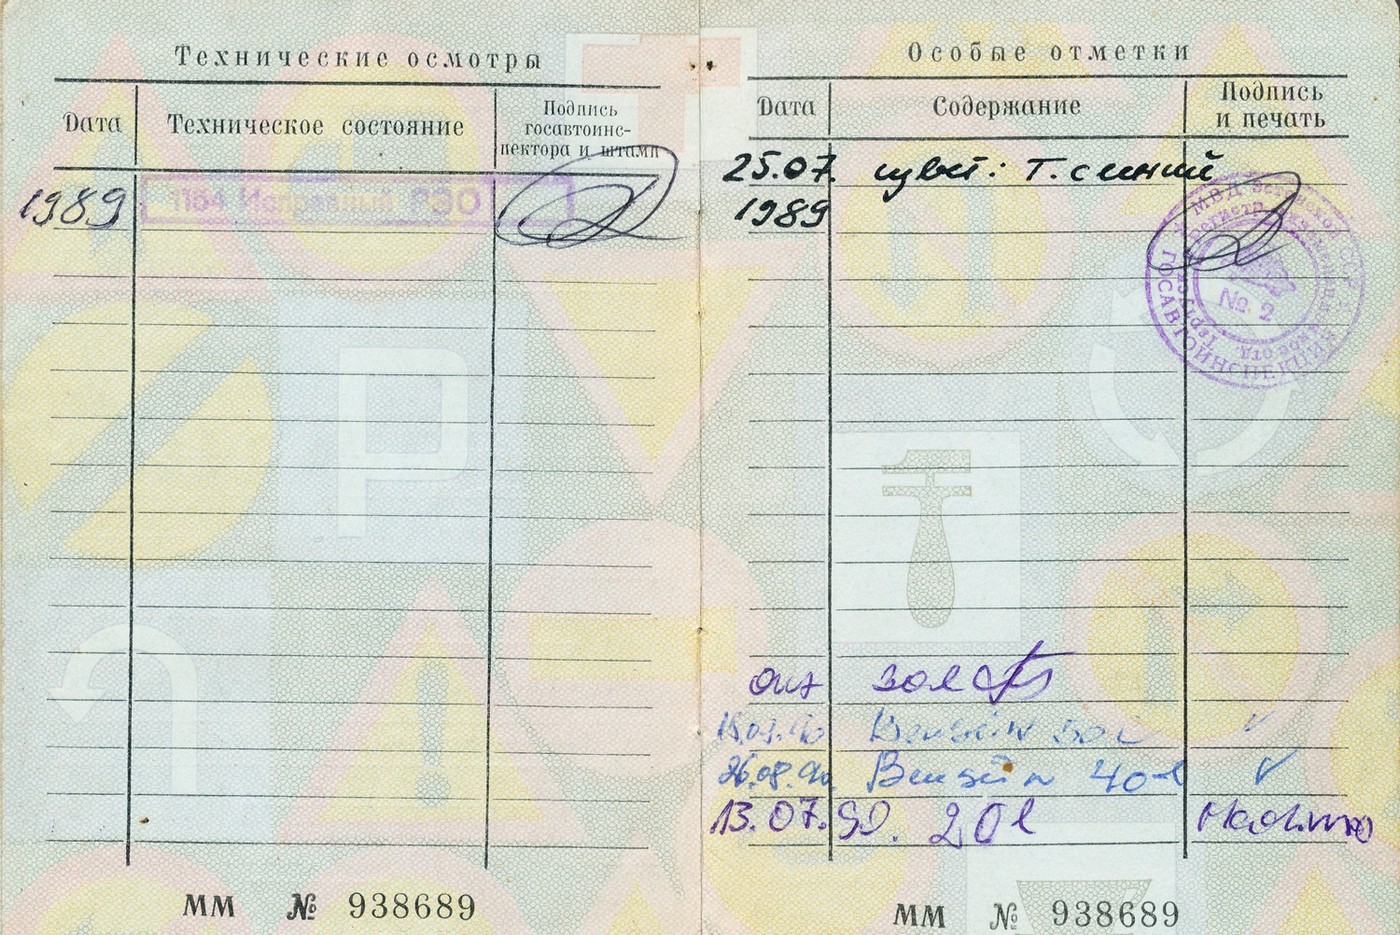 Технические осмотры
Дата
Техническое состояние
Подпись
госавтоинс-
пектора и штамп
1989
1154 Исправный РЭО
ММ № 938689
Особые отметки
Дата
Содержание
Подпись
и печать
25.07. цвет: т. синий
1989
МВД Эстонской ССР
ГОСАВТОИНСПЕКЦИЯ
№ 2
26.08.90. Bensiin 40 l
13.07.90. 20 l
ММ № 938689